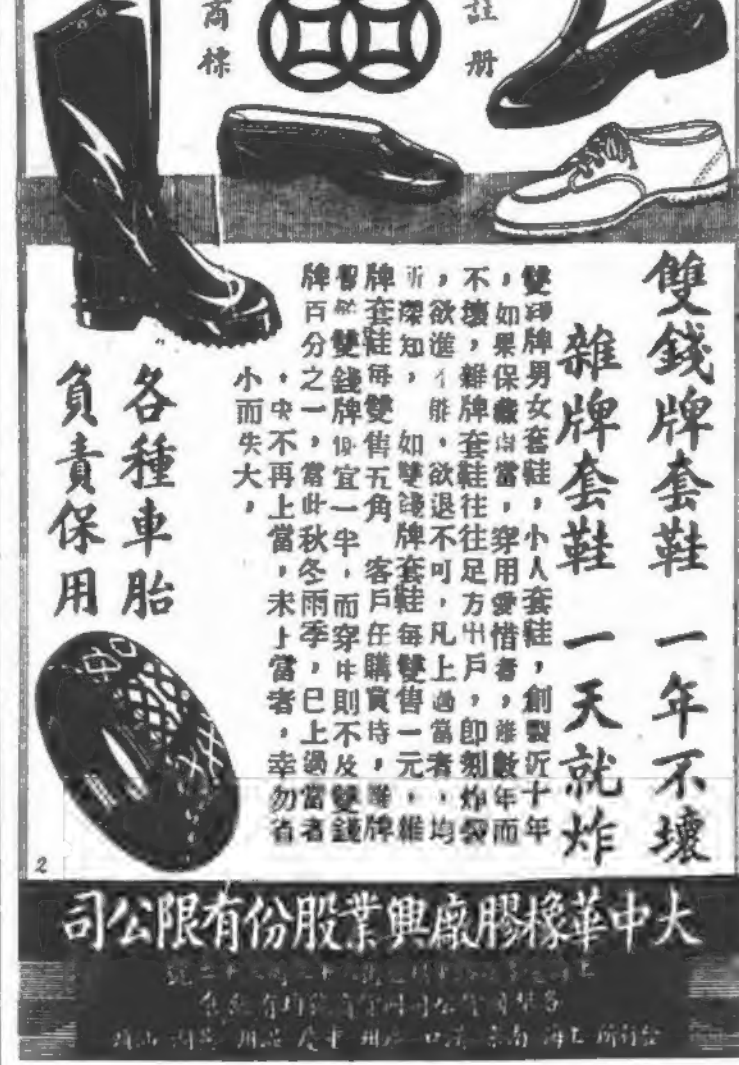 註册
商標
雙錢牌套鞋 一年不壞
雜牌套鞋 一天就炸
雙錢牌男女套鞋，小人套鞋，創製近十年
，如果保藏得當，穿用愛惜者，雖數年而
不壞，雜牌套鞋往往足方出戶，即刻炸裂
，欲進不能，欲退不可，凡上過當者，均
所深知， 如雙錢牌套鞋每雙售一元，雜
牌套鞋每雙售五角 客戶在購買時，雜牌
雙錢牌便宜一半，而穿時則不及雙錢
牌百分之一，當此秋冬雨季，已上過當者
，決不再上當，未上當者，幸勿省
小而失大，
各種車胎
負責保用
2
大中華橡膠廠興業股份有限公司
發行所 上海 南京 漢口 重慶